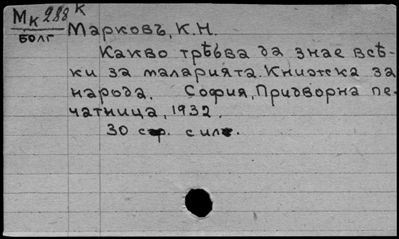 Мк 288 к
БОЛГ
Марковъ, К.Н.
Какво трѣбва да знае всѣ-
ки за маларията. Книжка за
народа. София, Придворна пе-
чатница, 1932.
30 стр. с илт.